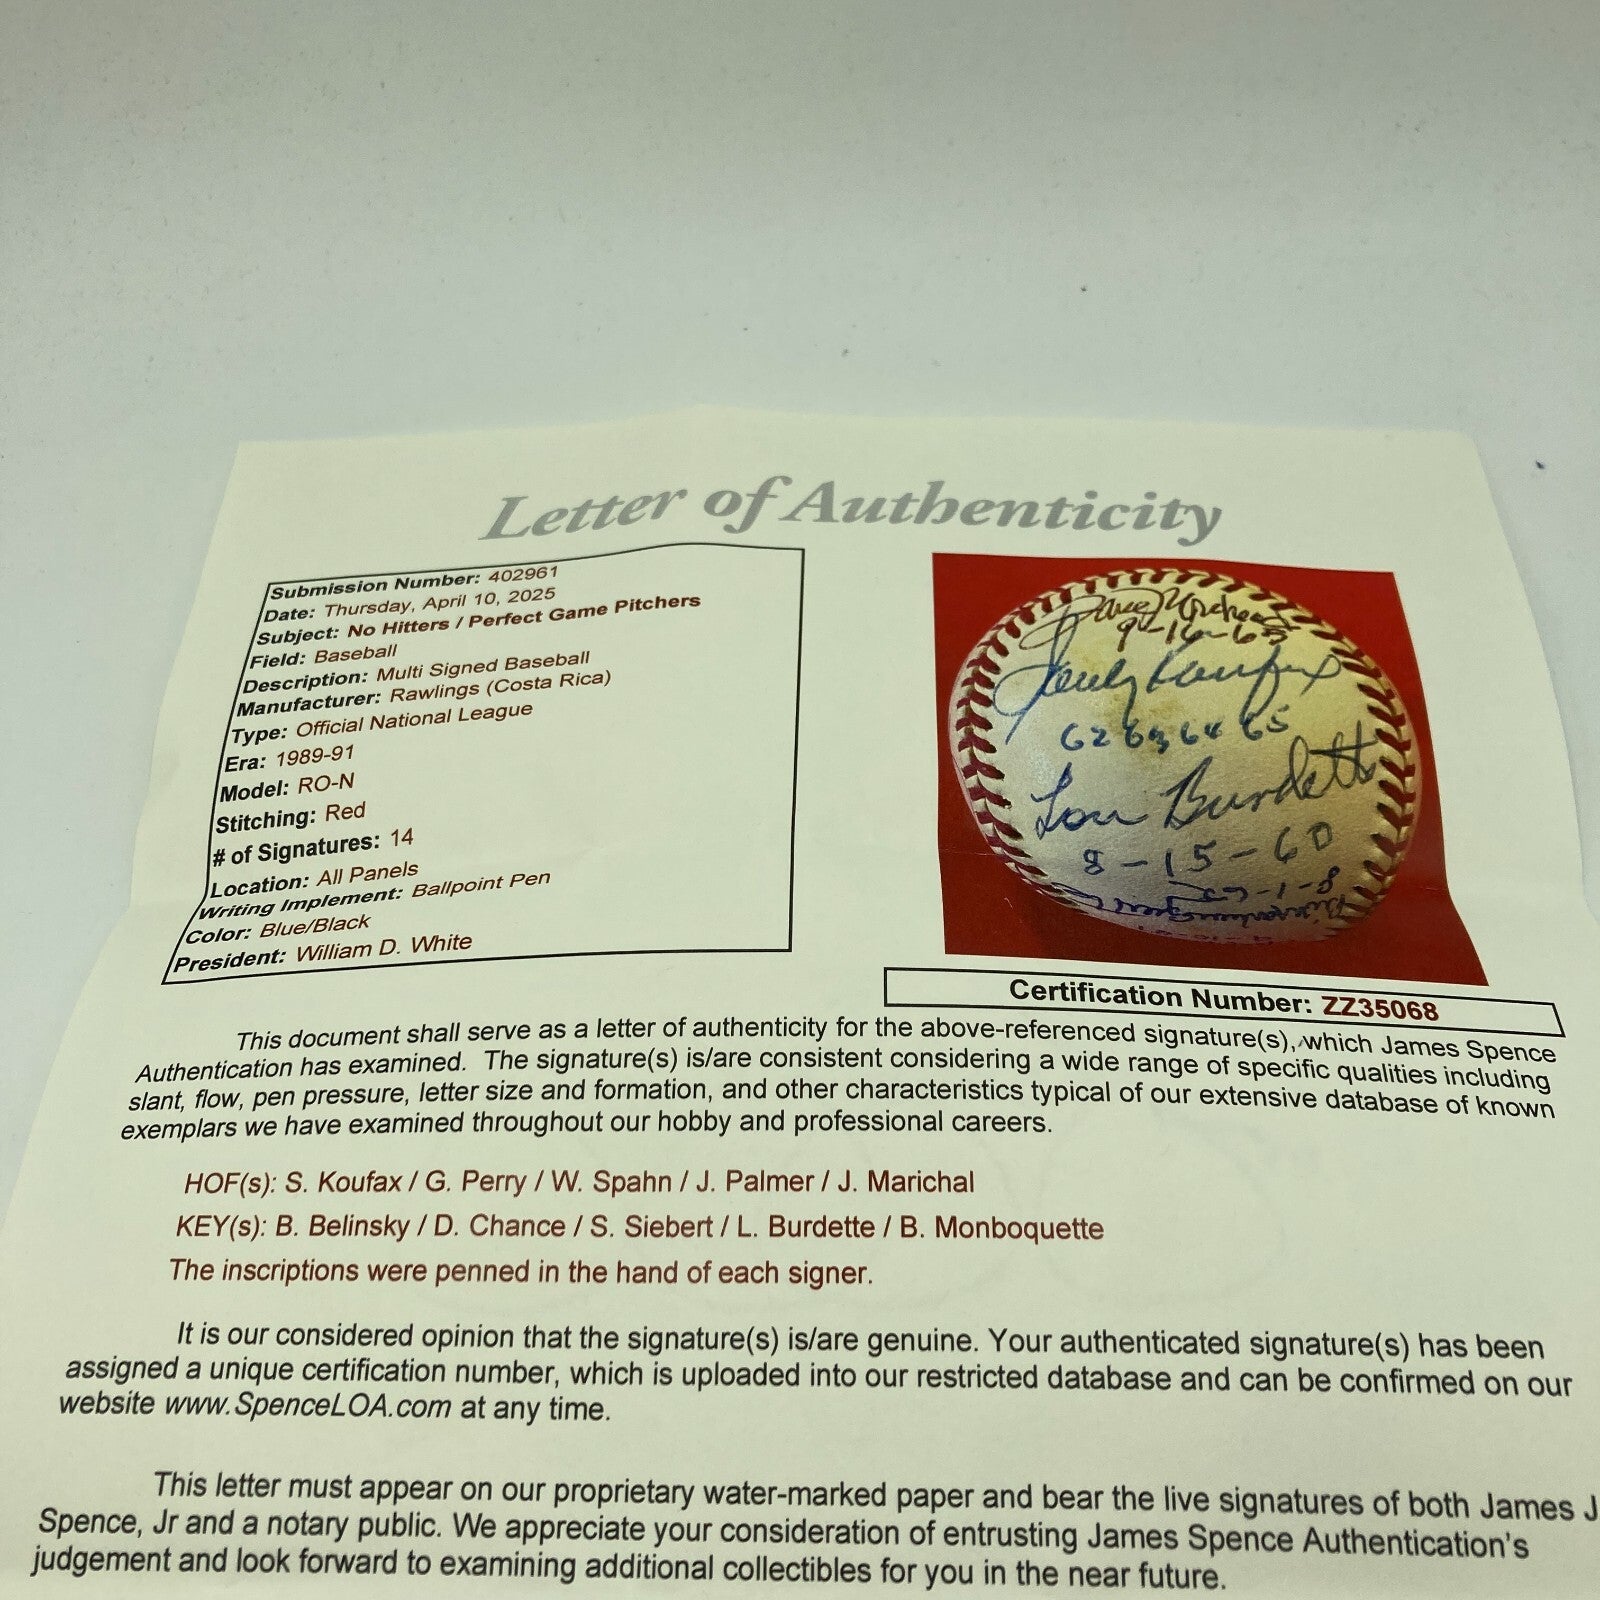 Letter of Authenticity
Submission Number: 402961
Date: Thursday, April 10, 2025
Subject: No Hitters / Perfect Game Pitchers
Field: Baseball
Description: Multi Signed Baseball
Manufacturer: Rawlings (Costa Rica)
Type: Official National League
Era: 1989-91
Model: RO-N
Stitching: Red
# of Signatures: 14
Location: All Panels
Writing Implement: Ballpoint Pen
Color: Blue/Black
President: William D. White
Sandy Koufax
62 63 64 65
Lou Burdette
8-15-60
Certification Number: ZZ35068
This document shall serve as a letter of authenticity for the above-referenced signature(s), which James Spence
Authentication has examined. The signature(s) is/are consistent considering a wide range of specific qualities including
slant, flow, pen pressure, letter size and formation, and other characteristics typical of our extensive database of known
exemplars we have examined throughout our hobby and professional careers.
HOF(s): S. Koufax / G. Perry / W. Spahn / J. Palmer / J. Marichal
KEY(s): B. Belinsky / D. Chance / S. Siebert / L. Burdette / B. Monboquette
The inscriptions were penned in the hand of each signer.
It is our considered opinion that the signature(s) is/are genuine. Your authenticated signature(s) has been
assigned a unique certification number, which is uploaded into our restricted database and can be confirmed on our
website www.SpenceLOA.com at any time.
This letter must appear on our proprietary water-marked paper and bear the live signatures of both James J
Spence, Jr and a notary public. We appreciate your consideration of entrusting James Spence Authentication's
judgement and look forward to examining additional collectibles for you in the near future.